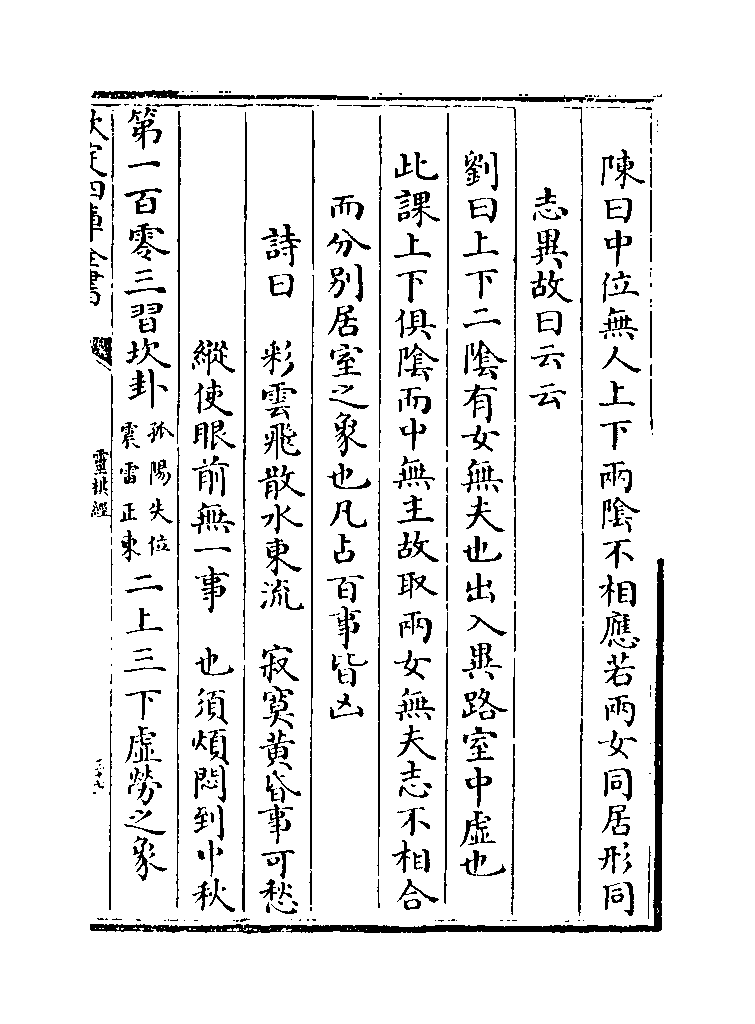 陳曰中位無人上下兩陰不相應若兩女同居形同
志異故曰云云
劉曰上下二陰有女無夫也出入異路室中虛也
此課上下俱陰而中無主故取兩女無夫志不相合
而分別居室之象也凡占百事皆凶
詩曰 彩雲飛散水東流 寂寞黃昏事可愁
縱使眼前無一事 也須煩悶到中秋
第一百零三習坎卦 孤陽失位 震雷正東 二上三下虛勞之象
欽定四庫全書
靈棋經